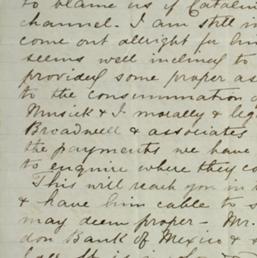 to blame us if Catalin
channel. I am still in
come out allright for him
seems well inclined to
provided some proper as
to the consummation o
Musick & I. morally & leg
Broadwell & associates
the payments we have
to enquire where they co
This will reach you in
& have him cable to s
may deem proper – Mr.
don Bank of Mexico &